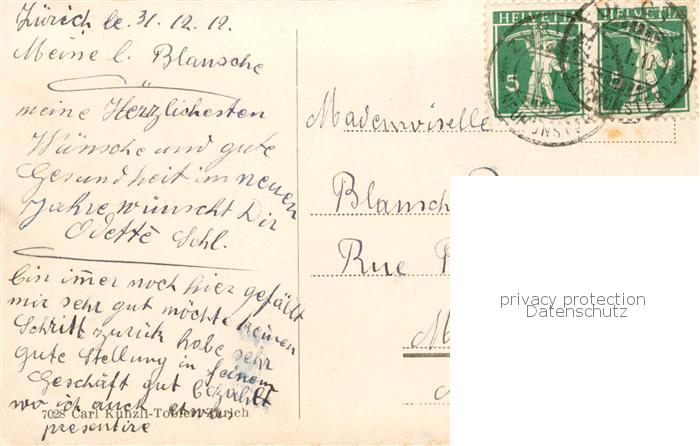 Zürich le. 31. 12. 12.
Meine l. Blansche
meine Herzlichesten
Wünsche und gute
Gesundheit im neuen
Jahre wünscht Dir
Odette Schl.
bin imer noch hier gefällt
mir sehr gut möchte keinen
Schritt zurück habe sehr
gute Stellung in feinem
Geschäft gut bezahlt
wo ich auch etwas
presentire
7028 Carl Künzli-Tobler, Zürich
HELVETIA
5
HELVETIA
5
Mademoiselle
Blansch
Rue
privacy protection
Datenschutz